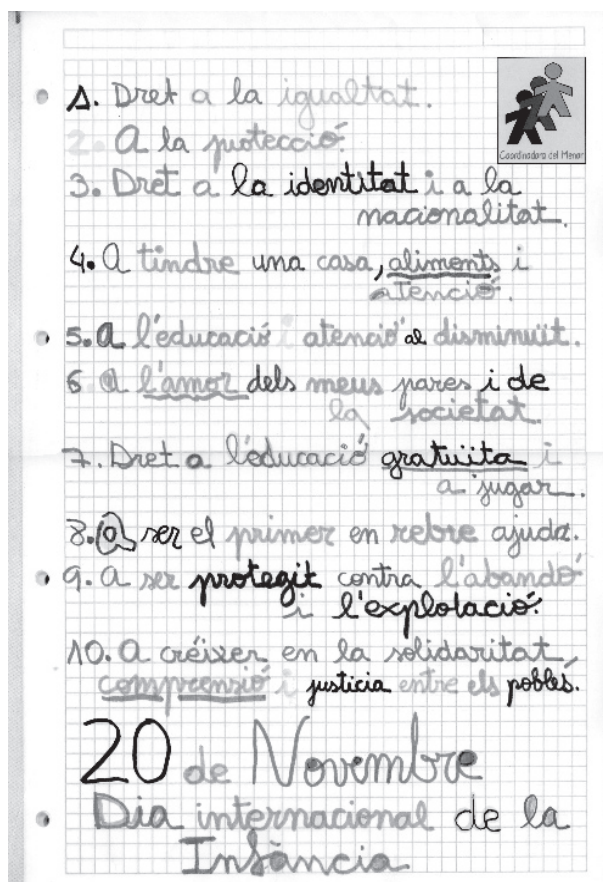 1. Dret a la igualtat.
2. A la protecció.
3. Dret a la identitat i a la
nacionalitat.
4. A tindre una casa, aliments i
atenció.
5. A l'educació i atenció al disminuït.
6 A l'amor dels meus pares i de
la societat.
7. Dret a l'educació gratuïta i
a jugar.
8. A ser el primer en rebre ajuda.
9. A ser protegit contra l'abandó
i l'explotació.
10. A créixer en la solidaritat,
comprensió i justicia entre els pobles.
20 de Novembre
Dia internacional de la
Infància
Coordinadora del Menor